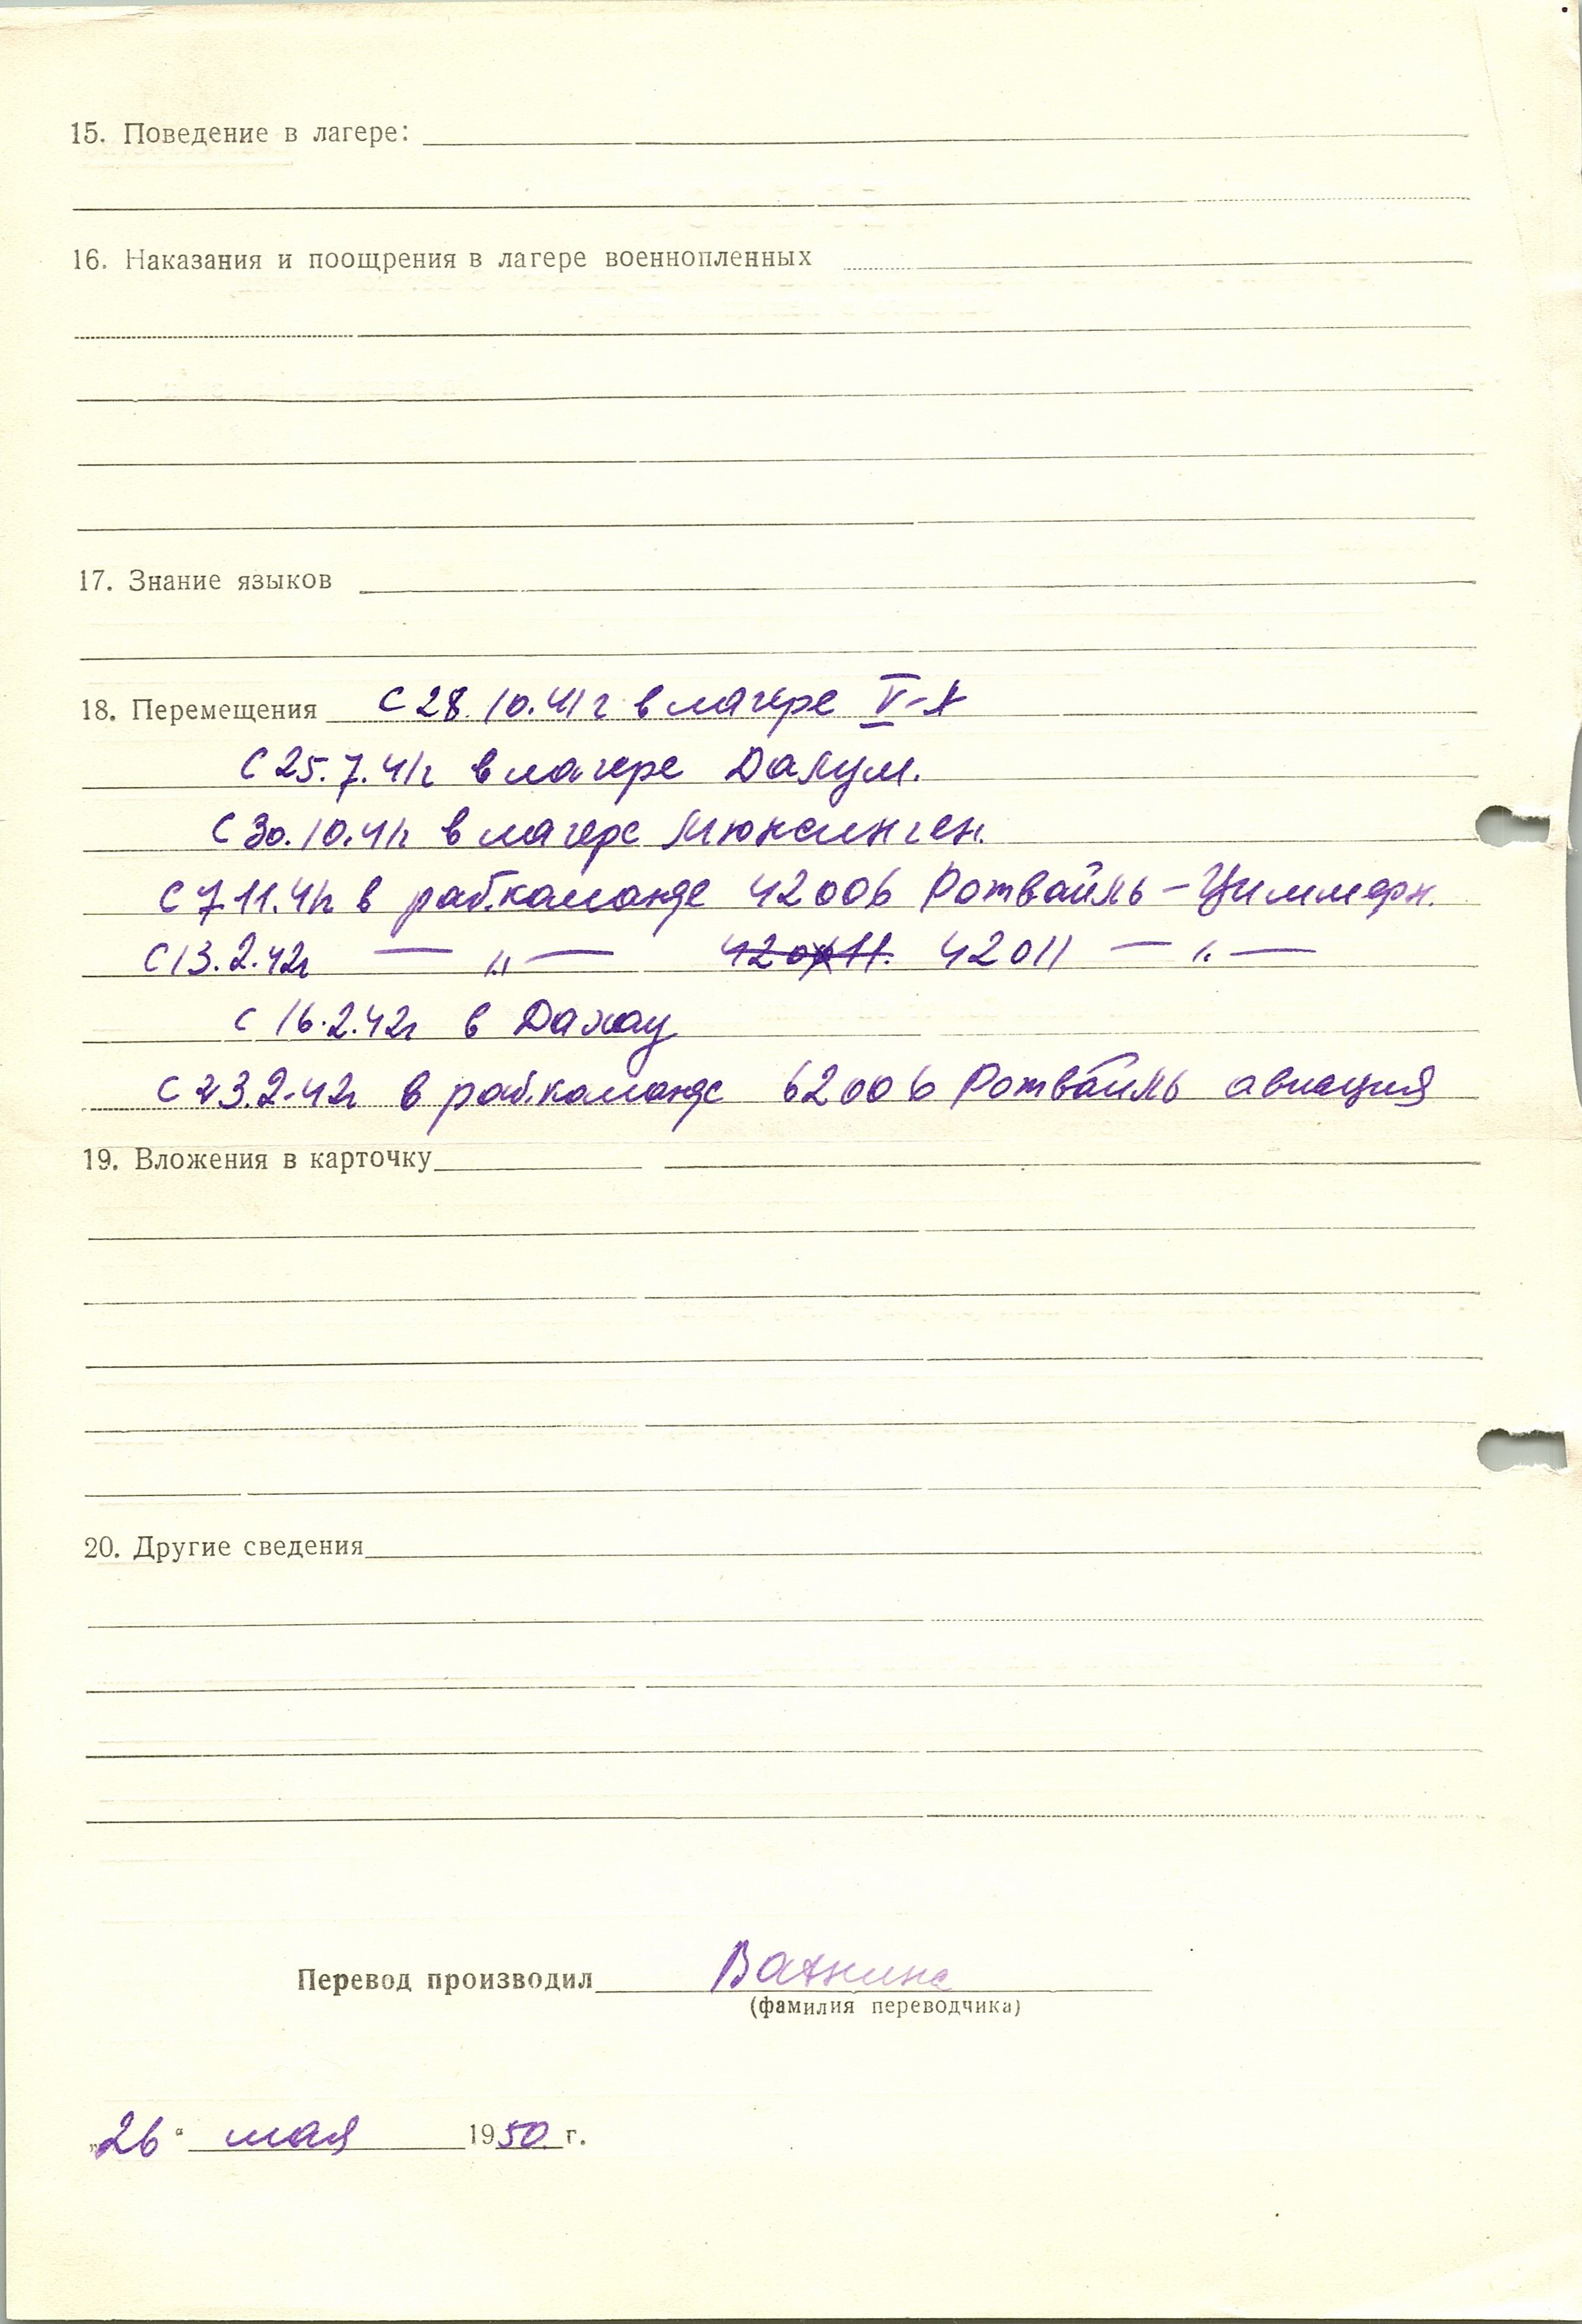 15. Поведение в лагере:
16. Наказания и поощрения в лагере военнопленных
17. Знание языков
18. Перемещения С 28.10.41г в лагере V-А
С 25.7.41г в лагере Далум.
С 30.10.41г в лагере Мюнсинген.
С 7.11.41г в раб.команде 42006 Ротвайль-Циммерн.
С 13.2.42г — „ — 42011. 42011 — „ —
С 16.2.42г в Дахау
С 23.2.42г в раб.команде 62006 Ротвайль авиация
19. Вложения в карточку
20. Другие сведения
Перевод производил
(фамилия переводчика)
„26“ мая 1950 г.